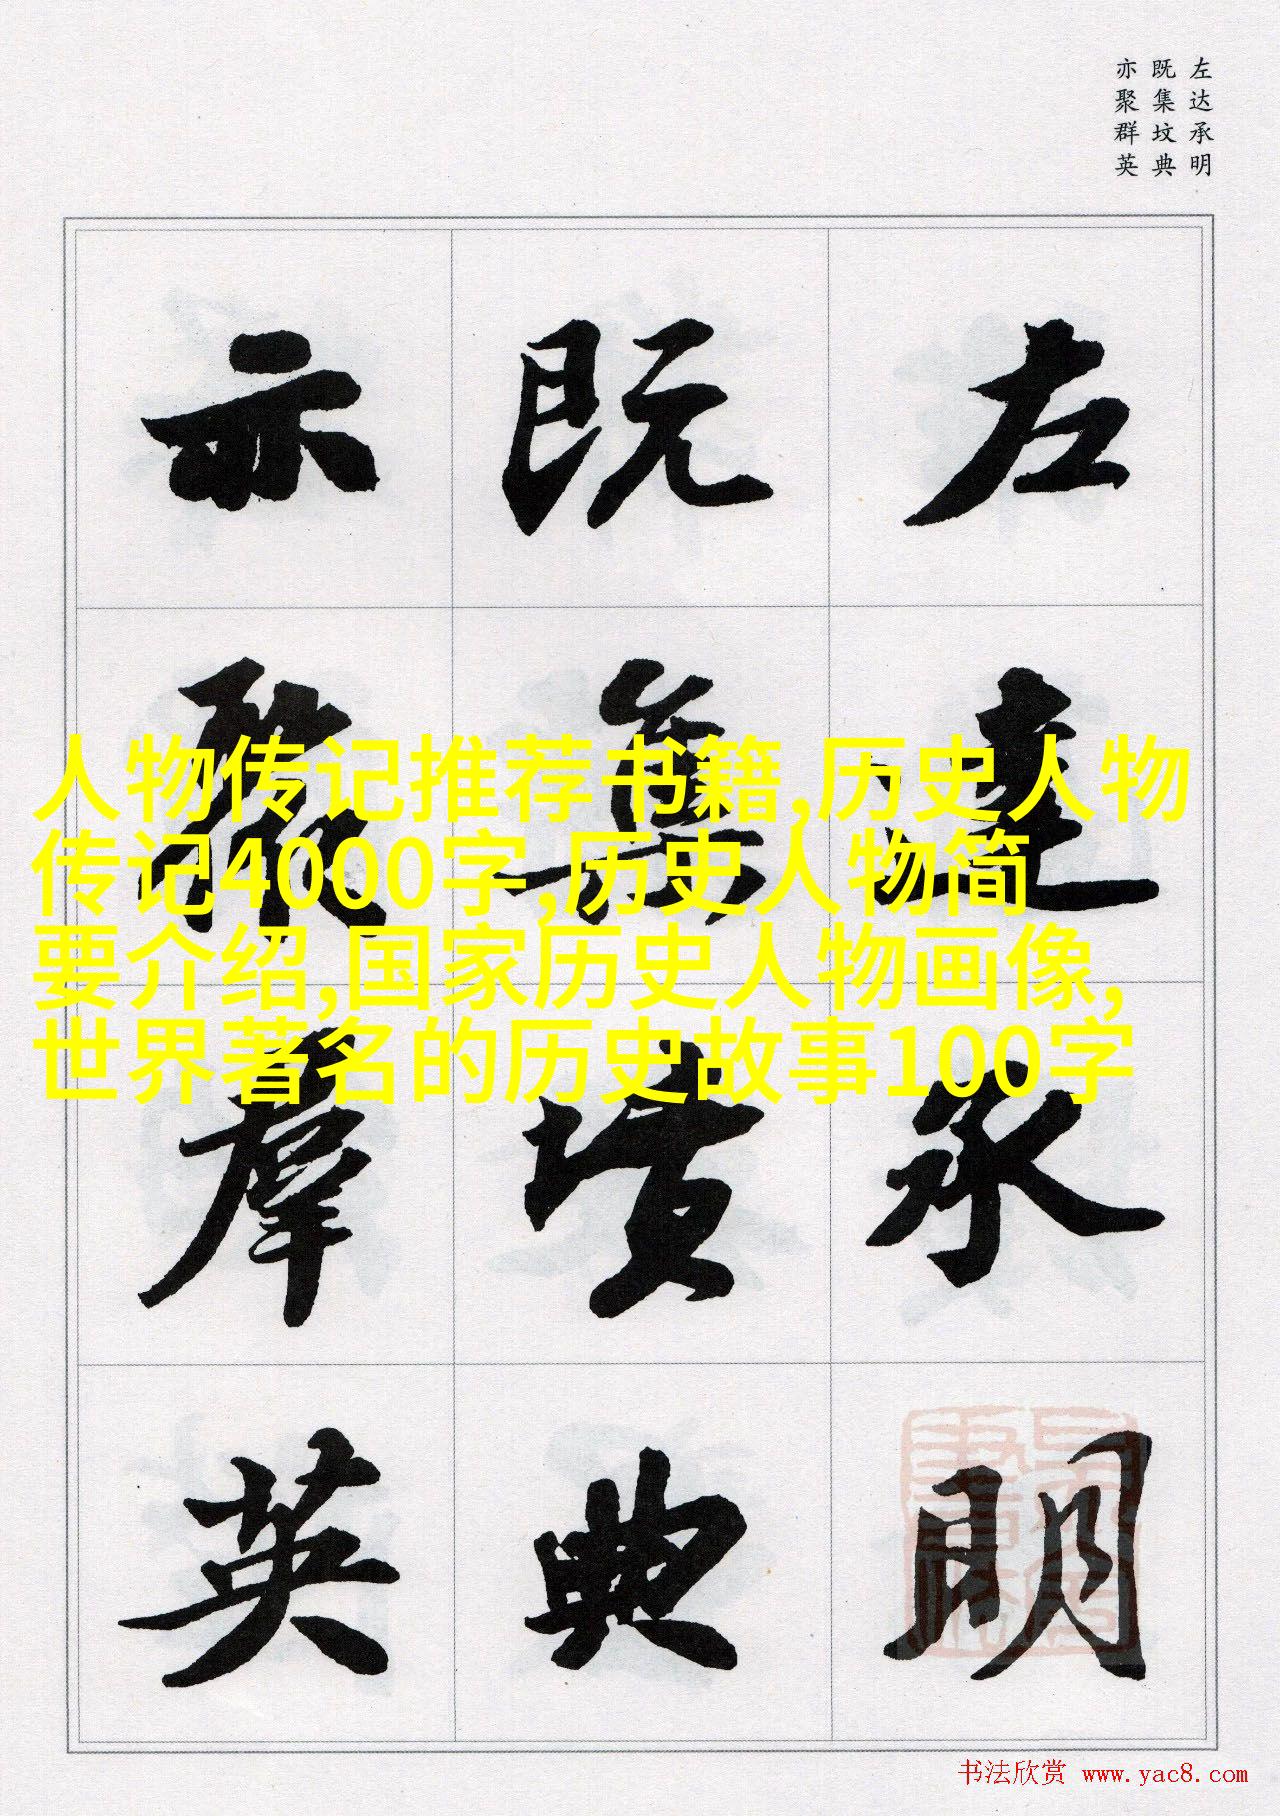 左达承明
既集坟典
亦聚群英
左达承明
既集坟典
亦聚群英
人物传记推荐书籍,历史人物
传记4000字,历史人物简
要介绍,国家历史人物画像,
世界著名的历史故事100字
书法欣赏 www.yac8.com